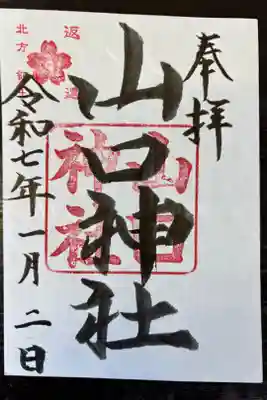 奉拝
山口神社
山口
神社
令和七年一月二日
北方